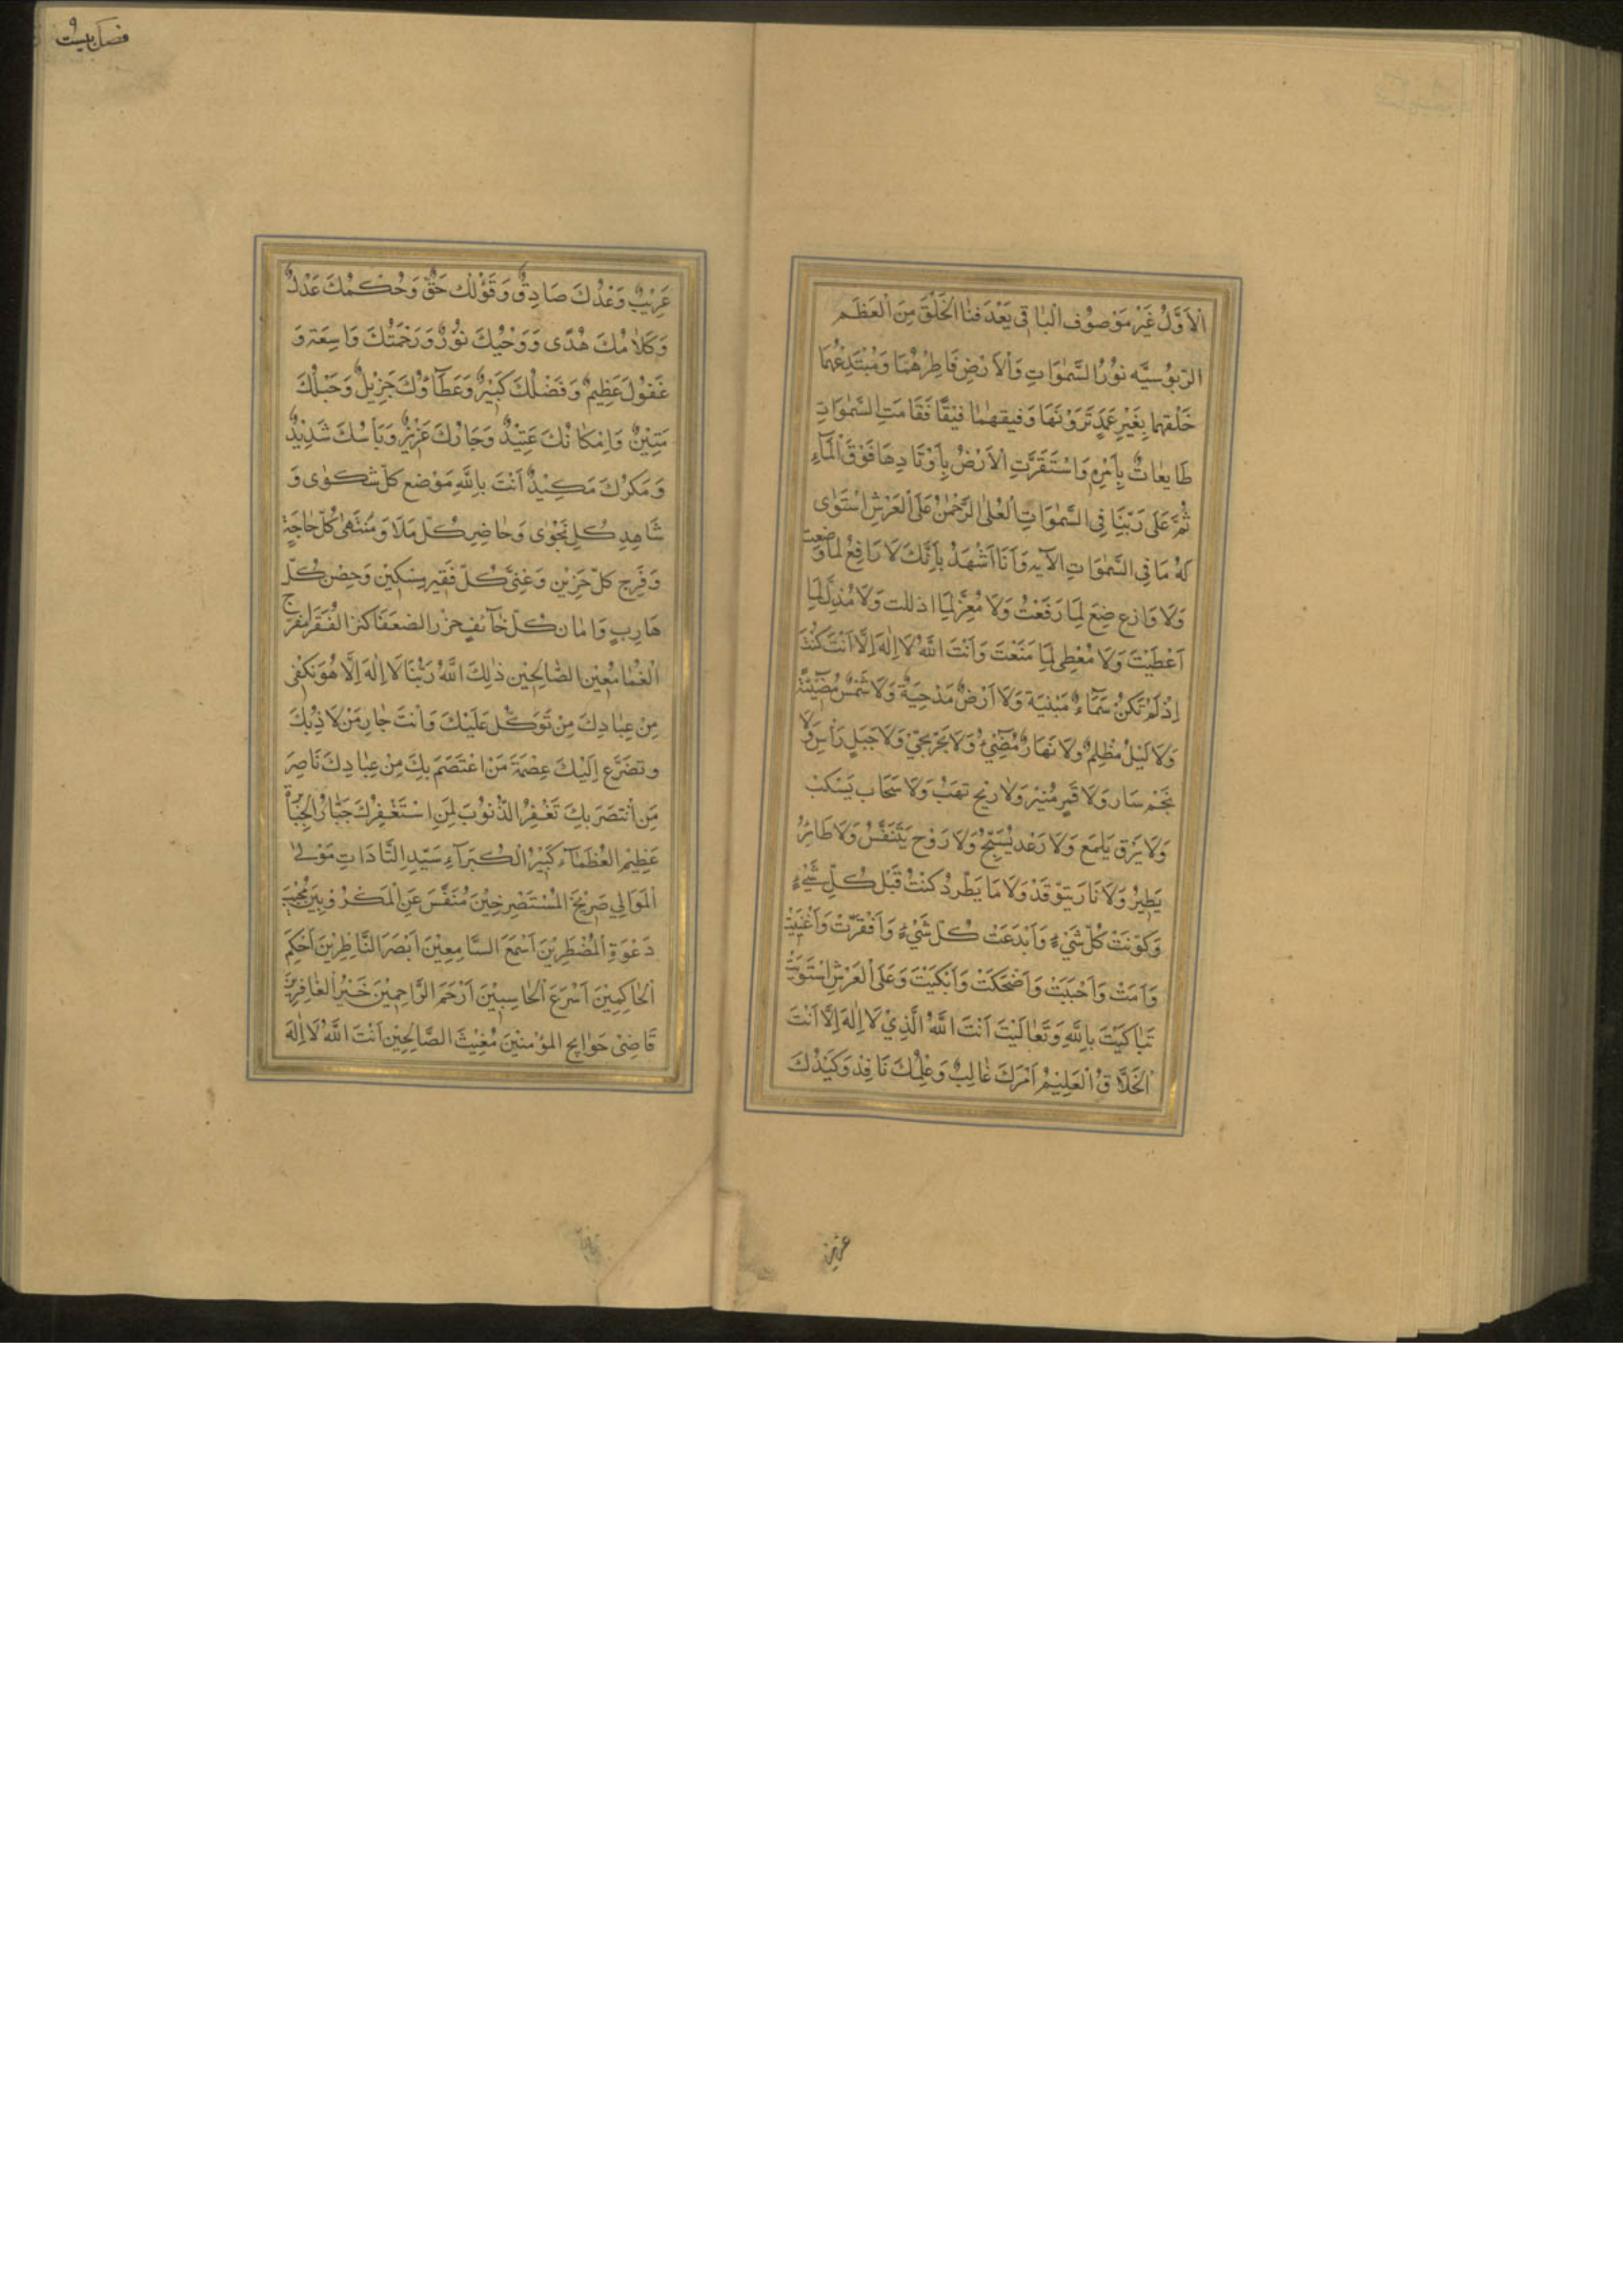 اَلاَوَّلُ غَيْرَ مَوْصُوْفِ الْبَاقِى بَعْدَ فَنَا الْخَلْقِ مِنَ الْعَظَمِ
الرّبوُسيَّه نوُرُ السَّمٰوَاتِ وَالْاَرْضِ فَاطِرْهُمَا وَمُبْتَدِعُهُمَا
خَلْقهما بِغَيْرِ عَمَدٍ تَرَوْنَهَا وَفيقهُمٰا فيْقًا فَقَامَتِ السَّمٰوَاتِ
طَايعٰاتٌ بِاَمْرِهِ وَاسْتَقَرَّتِ الْاَرْضُ بِاَوْتَادِهَا فَوْقَ الْمَآءِ
ثُمَّ عَلَى رَبّنَا فِى السَّمٰوَاتِ الْعُلٰى الرَّحْمٰنُ عَلَى الْعَرْشِ اسْتَوٰى
لَهُ مَا فِى السَّمٰوَاتِ الآيه وَاَنَا اَشْهَدُ بِاَنَّكَ لَا رَافِعُ لِمَا وَضعت
وَلَا وَازع ضِعَ لِمَا رَفَعْتُ وَلَا مُعِزَّ لِمَا اذللت وَلَا مُذِلَّ لِمَا
اَعْطَيْتَ وَلَا مُعْطِى لِمَا مَنَعْتَ وَاَنْتَ اللّٰهُ لَا اِلٰهَ اِلَّا اَنْتَ كُنْتَ
اِذْ لَمْ تَكُنْ سَمَآءٌ مَبْنيَةٌ وَلَا اَرْضٌ مَدْحِيَةٌ وَلَا شَمْسٌ مُضٓيْئَةٌ
وَلَا لَيْلٌ مُظْلِمٌ وَلَا نَهَارٌ مُضْٓيءٌ وَلَا بَحْرٌ لُجىّ وَلَا جَبَلٍ رَاْسٍ وَلَا
نَجْمٌ سَار وَلَا قَمِرٍ مُنِيْر وَلَا رِيْح تهَبْ وَلَا سَحَاب يَسْكبْ
وَلَا بَرْق يَلمَع وَلَا رَعْد يُسَبِّحُ وَلَا رَوْح يَتَنَفَّسْ وَلَا طَايِرُ
يَطِيْرُ وَلَا نَار يَتوْقَدْ وَلَا مَا يَطّرِدُ كنْتُ قَبْلَ كُلِّ شَيْءٍ
وَكوّنَتْ كُلّ شَيْءٍ وَاَبْدَعَتْ كُلّ شَيْءٍ وَاَفْقَرْتَ وَاَغْنَيْتَ
وَاَمَتْ وَاَحْيَيَتْ وَاَضْحَكَتْ وَاَبْكَيْتَ وَعَلَى الْعَرْشِ اسْتَوَيْتَ
تَبَاكَيْتَ بِاللّٰهِ وَتَعٰالَيْتَ اَنْتَ اللّٰهُ الَّذِيْ لَا اِلٰهَ اِلَّا اَنْتَ
الْخَلَّاقُ الْعَلِيْمُ اَمْرَكَ غٰالِبٌ وَعْلِمُكَ نَافِذٌ وَكَيْدُكَ
عزيز
فصل بيست و
غَرِيْبٌ وَعْدُكَ صَادِقٌ وَقَوْلك حَقٌّ وَحُكْمُكَ عَدْلٌ
وَكَلَامُكَ هُدًى وَوَحْيُكَ نُوْرٌ وَرَحْمَتُكَ وَاسِعَة وَ
عَفوُكَ عَظِيْمٌ وَفَضْلُكَ كَبَيْرٌ وَعَطَآوُكَ جَزِيْلٌ وَحَبْلُكَ
مَتِيْنٌ وَامْكَانُكَ عَتِيْدٌ وَجَارُكَ عَزِيْزٌ وَبَأْسُكَ شَدِيْدٌ
وَمَكرُكَ مَكِيْدٌ اَنْتَ بِاللّٰهِ مَوْضع كلّ شكوٰى وَ
شَاهِدِ كُلِ نَجْوٰى وَحٰاضِرِ كُلّ مَلَا وَمُنْتَهٰى كُلّ حٰاجَةٍ
وَفَرِج كلّ حَزِيْن وَغِنىَّ كُلّ فَقِيْرٍ مِسْكِيْن وَحِصْن كُلّ
هَارِبٍ وَامٰان كُلّ خٰآئفٍ حرْز الضعَفَا كنز الفُقَرَا مفرّج
الْغُمَّا مُعِيْن الصَّالِحِيْن ذٰلِكَ اللّٰهُ رَبُّنَا لَا اِلٰهَ اِلَّا هُوَ تَكْفِى
مِنْ عِبٰادِكَ مِنْ تَوَكَّلَ عَلَيْكَ وَاَنْتَ جٰار مَنْ لَاذَبِكَ
وتضَرَّع اِلَيْكَ عِصْمَة مَنْ اعْتَصَمَ بِكَ مِنْ عِبٰادِكَ نَاصِرَ
مَنِ انْتصَرَ بِكَ تَغْفِرُ الذُّنوُبَ لِمَنِ اسْتَغْفِرُكَ جَبّٰارُ الْجَبَابِرَةِ
عَظِيْم الْعُظَمَآء كَبِيْرُ الْكُبَرَآءِ سَيِّدِ السَّادَاتِ مَوْلٰى
الْمَوَالِي صَرِيْخَ الْمُسْتَصْرِخِيْنَ مُنَفَّسَ عَنِ الْمَكْرُوْبِيْنَ مُجِيْبَ
دَعْوَةِ الْمُضْطَرِيْنَ اَسْمَعَ السَّامِعِيْنَ اَبْصَرَ النَّاظِرِيْنَ اَحْكَمَ
الْحٰاكِمِيْنَ اَسْرَعَ الْحٰاسِبِيْنَ اَرْحَمَ الرَّاحِمِيْنَ خَيْرُ الْغٰافِرِيْنَ
قَاضِىْ حَوَايج المؤمِنِيْنَ مُغِيْثَ الصَّالِحِيْنَ اَنْتَ اللّٰهُ لَا اِلٰهَ